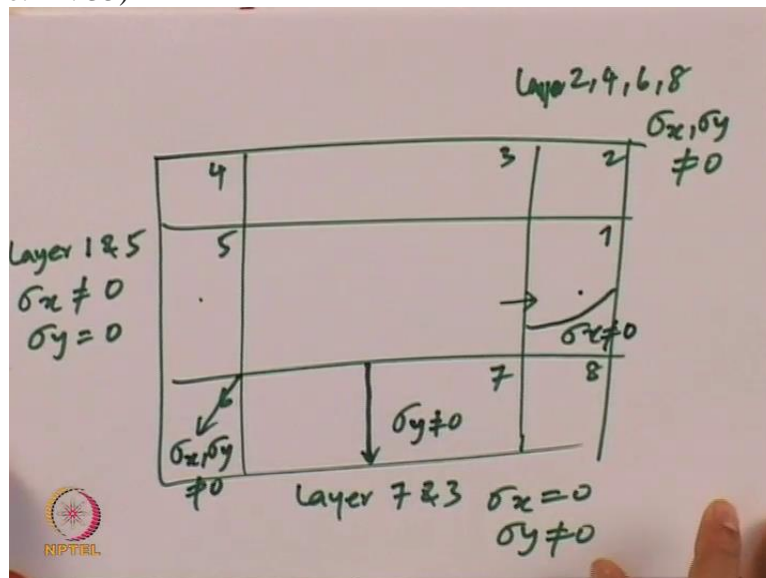 Layer 2, 4, 6, 8
σx, σy
≠0
4
3
2
Layer 1 & 5
σx ≠ 0
σy = 0
5
1
σx≠0
7
8
6
σy≠0
σx, σy
≠0
Layer 7 & 3
σx = 0
σy ≠ 0
NPTEL